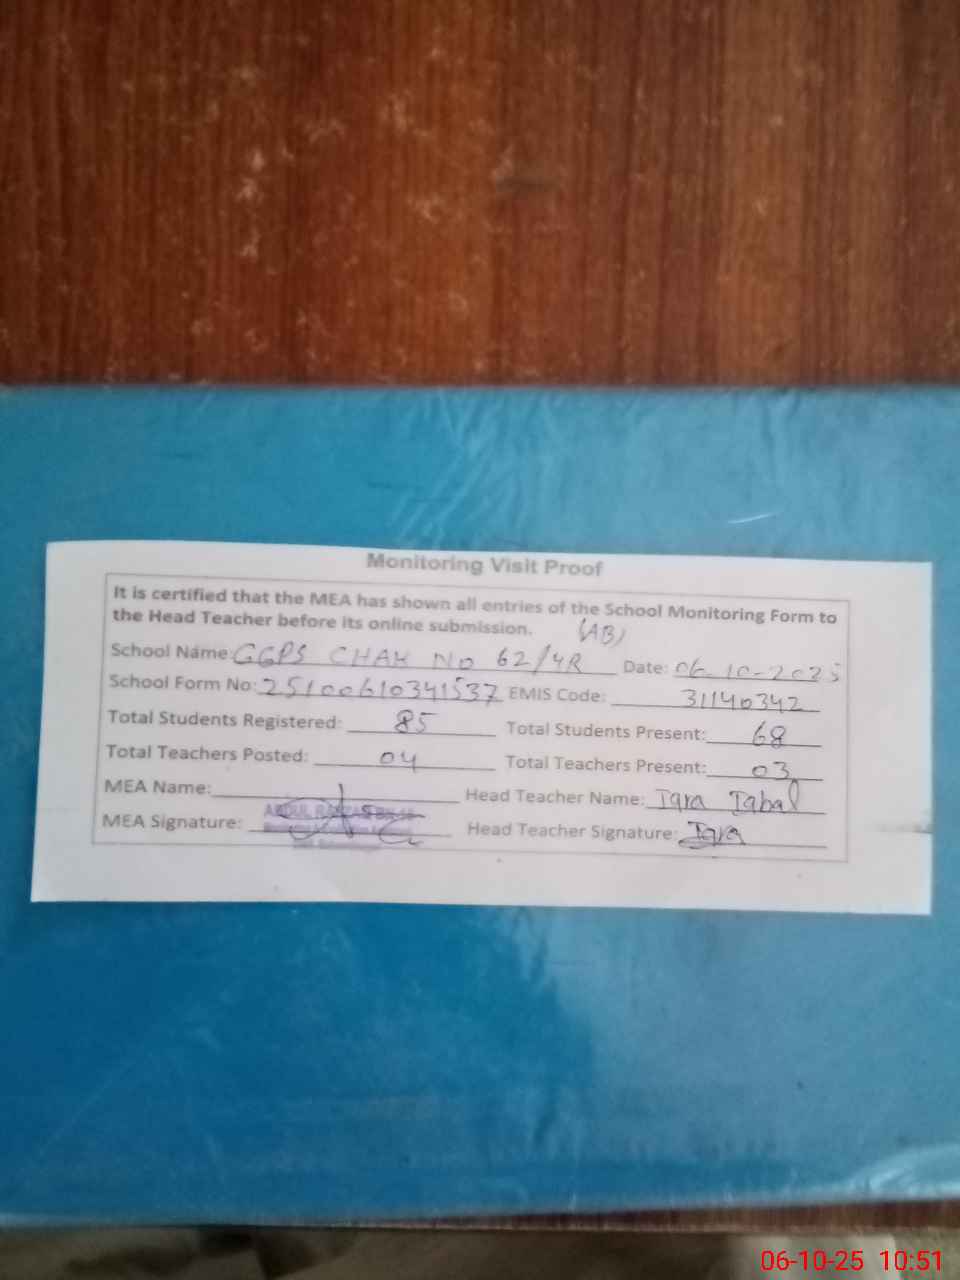 Monitoring Visit Proof
It is certified that the MEA has shown all entries of the School Monitoring Form to
the Head Teacher before its online submission.
(AB)
School Name: GGPS CHAK NO 62/4R Date: 06-10-2025
School Form No: 25100610341537 EMIS Code: 31140342
Total Students Registered: 85 Total Students Present: 68
Total Teachers Posted: 04 Total Teachers Present: 03
MEA Name: Head Teacher Name: Iqra Iqbal
ABDUL
MEA Signature: Head Teacher Signature: Iqra
06-10-25 10:51